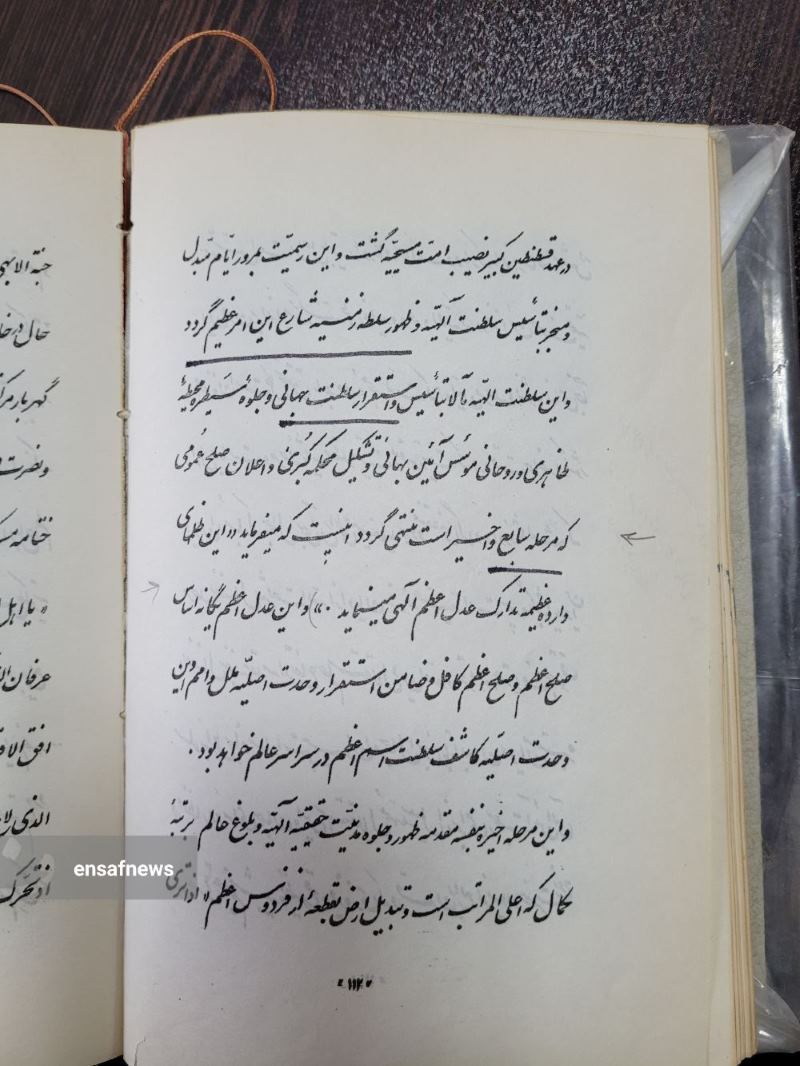 در عهد قسطنطین کبیر نصیب امت مسیحیه گشت و این رسمیت بمرور ایام مبدل
و منجر بتأسیس سلطنت آلهیه و ظهور سلطه زمنیه شارع این امر عظیم گردد
و این سلطنت الهیه مآلا بتأسیس و استقرار سلطنت جهانی و جلوهٔ سیطره محیطهٔ
ظاهری و روحانی مؤسس آئین بهائی و تشکیل محکمه کبری و اعلان صلح عمومی
که مرحله سابع و اخیر است منتهی گردد اینست که میفرماید «این ظلمهای
وارده عظیمه تدارک عدل اعظم آلهی مینماید .» و این عدل اعظم یگانه اساس
صلح اعظم و صلح اعظم کافل و ضامن استقرار وحدت اصلیه ملل و امم و این
وحدت اصلیه کاشف سلطنت اسم اعظم در سراسر عالم خواهد بود .
و این مرحله اخیره بنفسه مقدمه ظهور و جلوه مدنیت حقیقیه آلهیه و بلوغ عالم برتبهٔ
کمال که اعلی المراتب است و تبدیل ارض بقطعهٔ از فردوس اعظم « اذا تری
"۱۱۲"
جنة الابهی
حال در
گهربار
و نصرت
« یا اهل
عرفان
افق
الذی
ensafnews